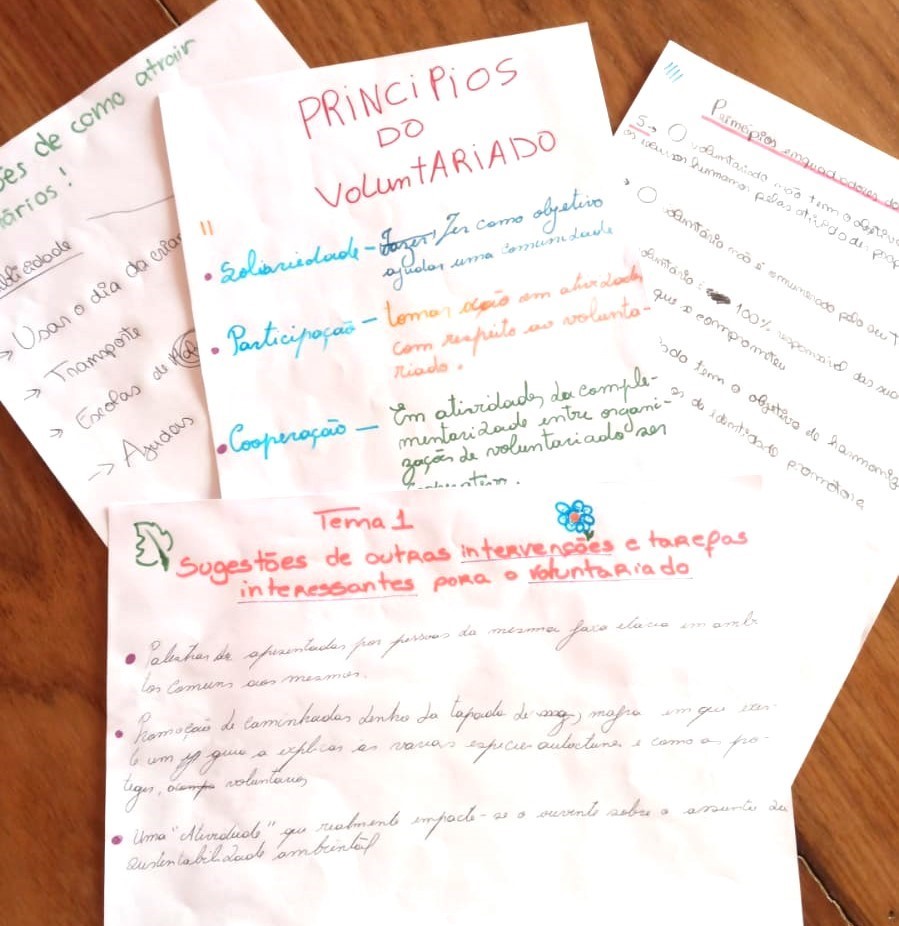 ões de como atrair
ários!
blicidade
→ Usar o dia da
→ Transporte
→ Escolas de
→ Ajudas
PRINCIPIOS
DO
VoluntARIADO
• Soliariedade - Fazer, Ter como objetivo
ajudar uma comunidade
• Participação - tomar ação em atividades
com respeito ao volunta-
riado.
• Cooperação - Em atividades de comple-
mentaridade entre organi-
zações de voluntariado ser
Principios enquadradores do
5→ O voluntariado não tem o objetivo
os recursos humanos pelas atividades
O voluntário não é remunerado pelo seu T
100% responsável das sua
que se comprometeu
tem o objetivo de harmoniza
de identidade promotora
Tema 1
Sugestões de outras intervenções e tarefas
interessantes para o voluntariado
• Palestras de apresentadas por pessoas da mesma faxa etaria em ambi
tos comuns aos mesmos.
• Promoção de caminhadas dentro da tapada de mafra em que
um guia a explicar as varias especies autoctunes e como as pro-
teger, voluntarios
• Uma "Atividade" que realmente impacte-se o ouvinte sobre o assunto da
sustentabilidade ambiental